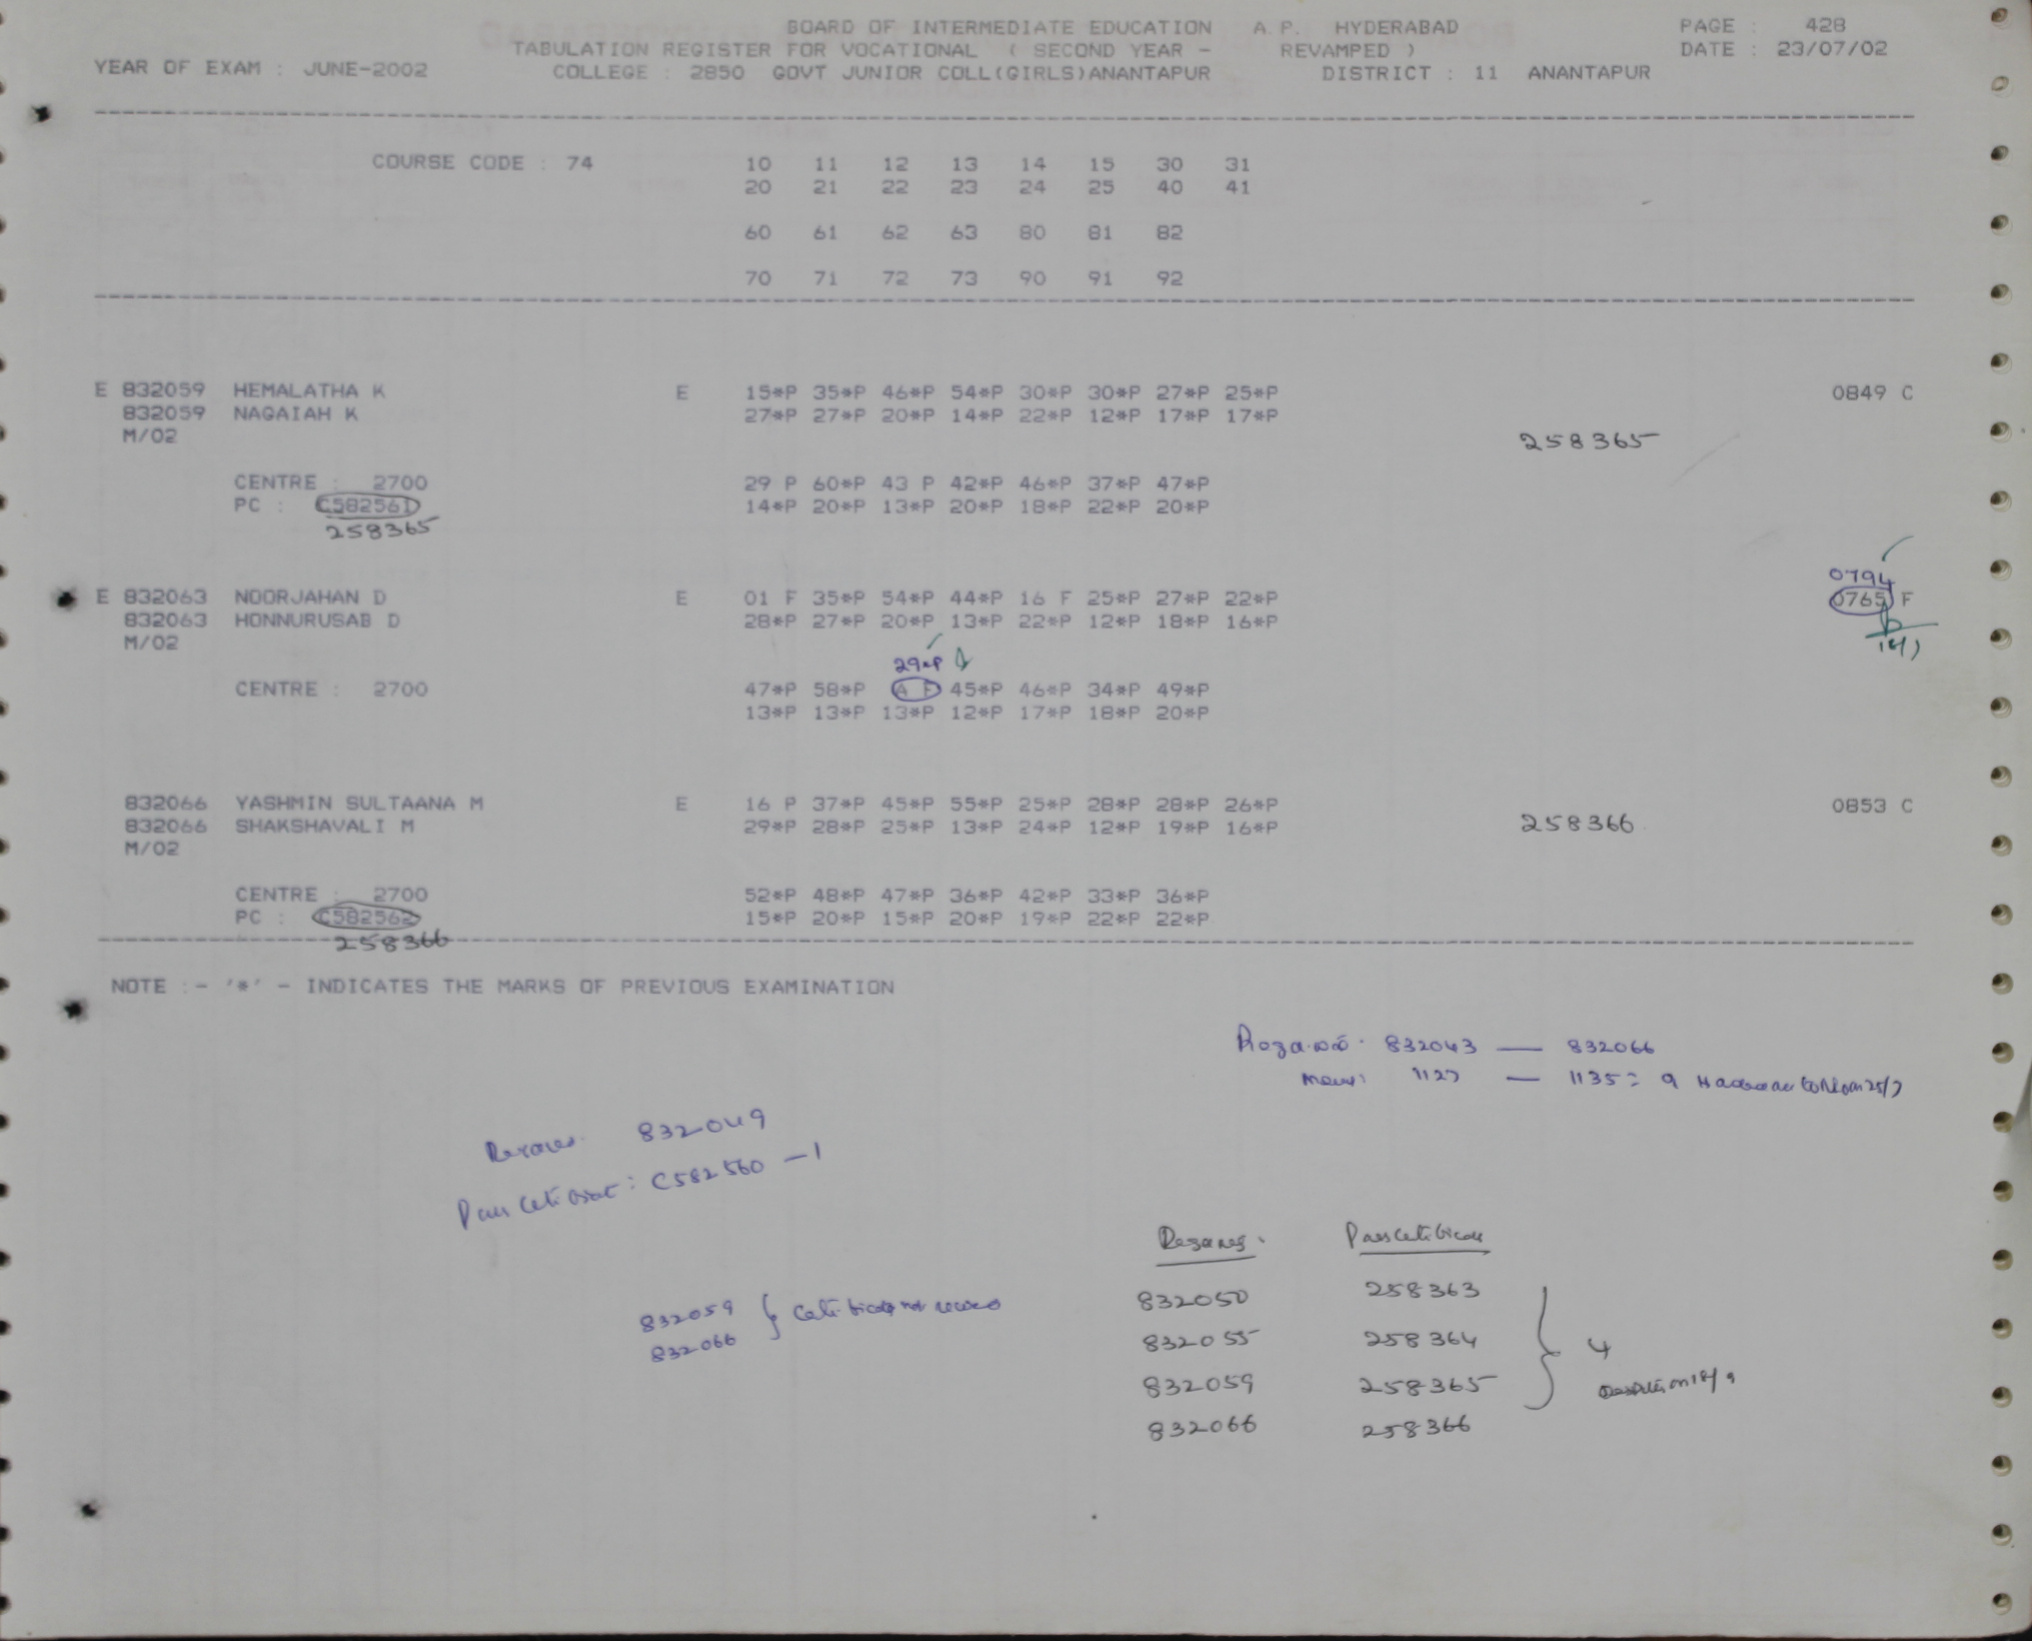 BOARD OF INTERMEDIATE EDUCATION A.P. HYDERABAD PAGE : 428
TABULATION REGISTER FOR VOCATIONAL ( SECOND YEAR - REVAMPED ) DATE : 23/07/02
YEAR OF EXAM : JUNE-2002 COLLEGE : 2850 GOVT JUNIOR COLL(GIRLS)ANANTAPUR DISTRICT : 11 ANANTAPUR
COURSE CODE : 74 10 11 12 13 14 15 30 31
20 21 22 23 24 25 40 41
60 61 62 63 80 81 82
70 71 72 73 90 91 92
E 832059 HEMALATHA K E 15*P 35*P 46*P 54*P 30*P 30*P 27*P 25*P 0849 C
832059 NAGAIAH K 27*P 27*P 20*P 14*P 22*P 12*P 17*P 17*P
M/02 258365
CENTRE : 2700 29 P 60*P 43 P 42*P 46*P 37*P 47*P
PC : C582561 14*P 20*P 13*P 20*P 18*P 22*P 20*P
258365
0794
E 832063 NOORJAHAN D E 01 F 35*P 54*P 44*P 16 F 25*P 27*P 22*P 0765 F
832063 HONNURUSAB D 28*P 27*P 20*P 13*P 22*P 12*P 18*P 16*P
M/02
29*P
CENTRE : 2700 47*P 58*P A F 45*P 46*P 34*P 49*P
13*P 13*P 13*P 12*P 17*P 18*P 20*P
832066 YASHMIN SULTAANA M E 16 P 37*P 45*P 55*P 25*P 28*P 28*P 26*P 0853 C
832066 SHAKSHAVALI M 29*P 28*P 25*P 13*P 24*P 12*P 19*P 16*P 258366
M/02
CENTRE : 2700 52*P 48*P 47*P 36*P 42*P 33*P 36*P
PC : C582562 15*P 20*P 15*P 20*P 19*P 22*P 22*P
258366
NOTE :- '*' - INDICATES THE MARKS OF PREVIOUS EXAMINATION
832043 — 832066
1127 — 1135 = 9
832049
C582560 - 1
832059
832066
832050 258363
832055 258364
832059 258365
832066 258366
4